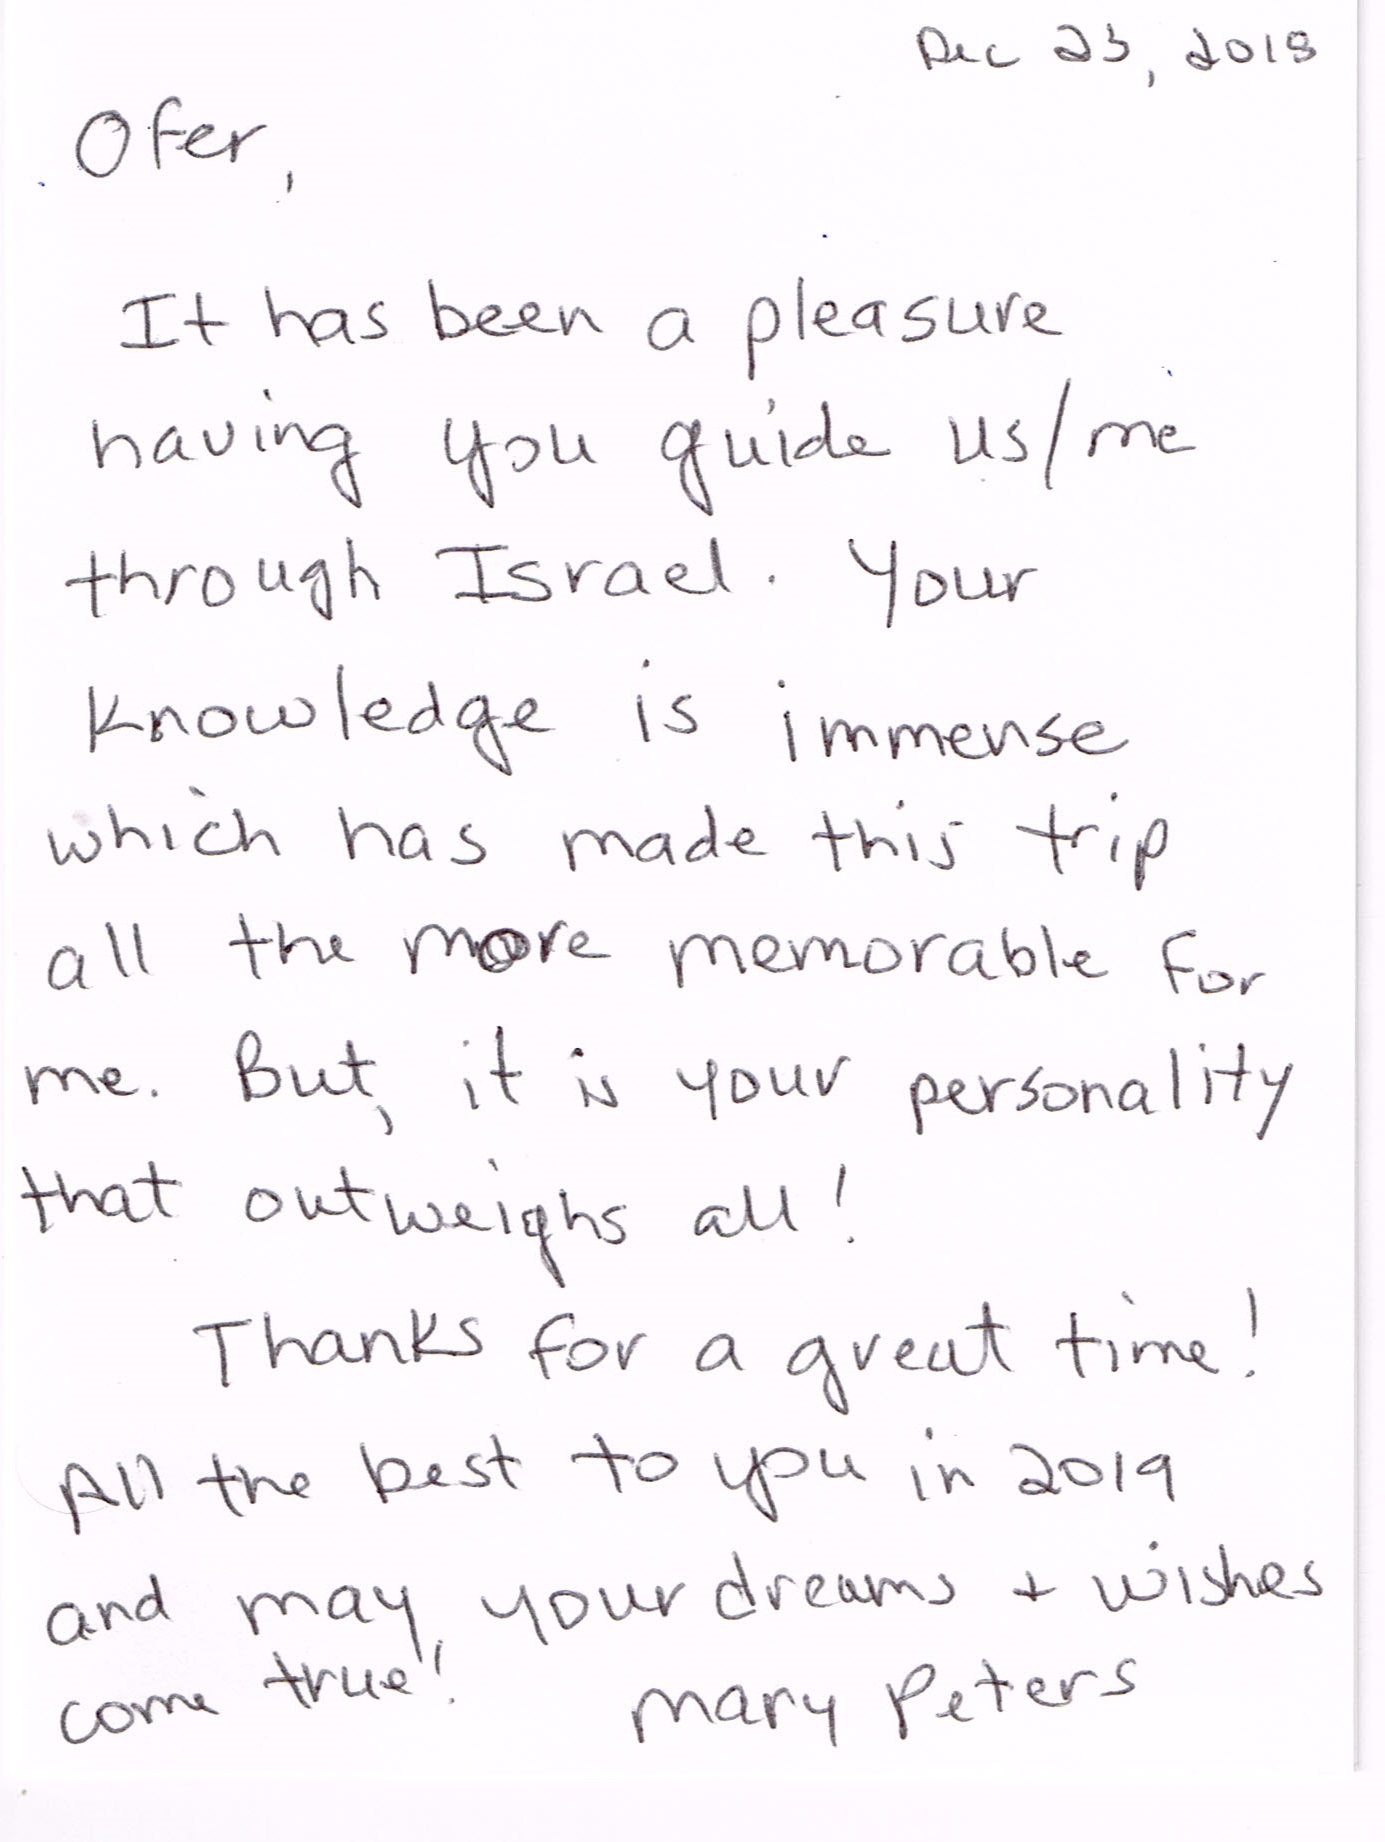 Dec 23, 2018
Ofer,
It has been a pleasure
having you guide us/me
through Israel. Your
knowledge is immense
which has made this trip
all the more memorable for
me. But, it is your personality
that outweighs all!
Thanks for a great time!
All the best to you in 2019
and may your dreams + wishes
come true!
Mary Peters